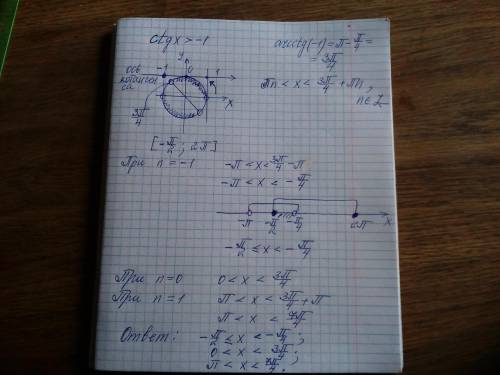 ctg x > -1
arcctg(-1) = π - π/4 =
= 3π/4
y
-1 0 1
ось котанген-
са
x
πn < x < 3π/4 + πn,
n ∈ Z
3π/4
[-π/2; 2π]
При n = -1 -π < x < 3π/4 - π
-π < x < -π/4
-π -π/2 -π/4 2π x
-π/2 ≤ x < -π/4
При n=0 0 < x < 3π/4
При n = 1 π < x < 3π/4 + π
π < x < 7π/4
Ответ: -π/2 ≤ x < -π/4;
0 < x < 3π/4;
π < x < 7π/4.